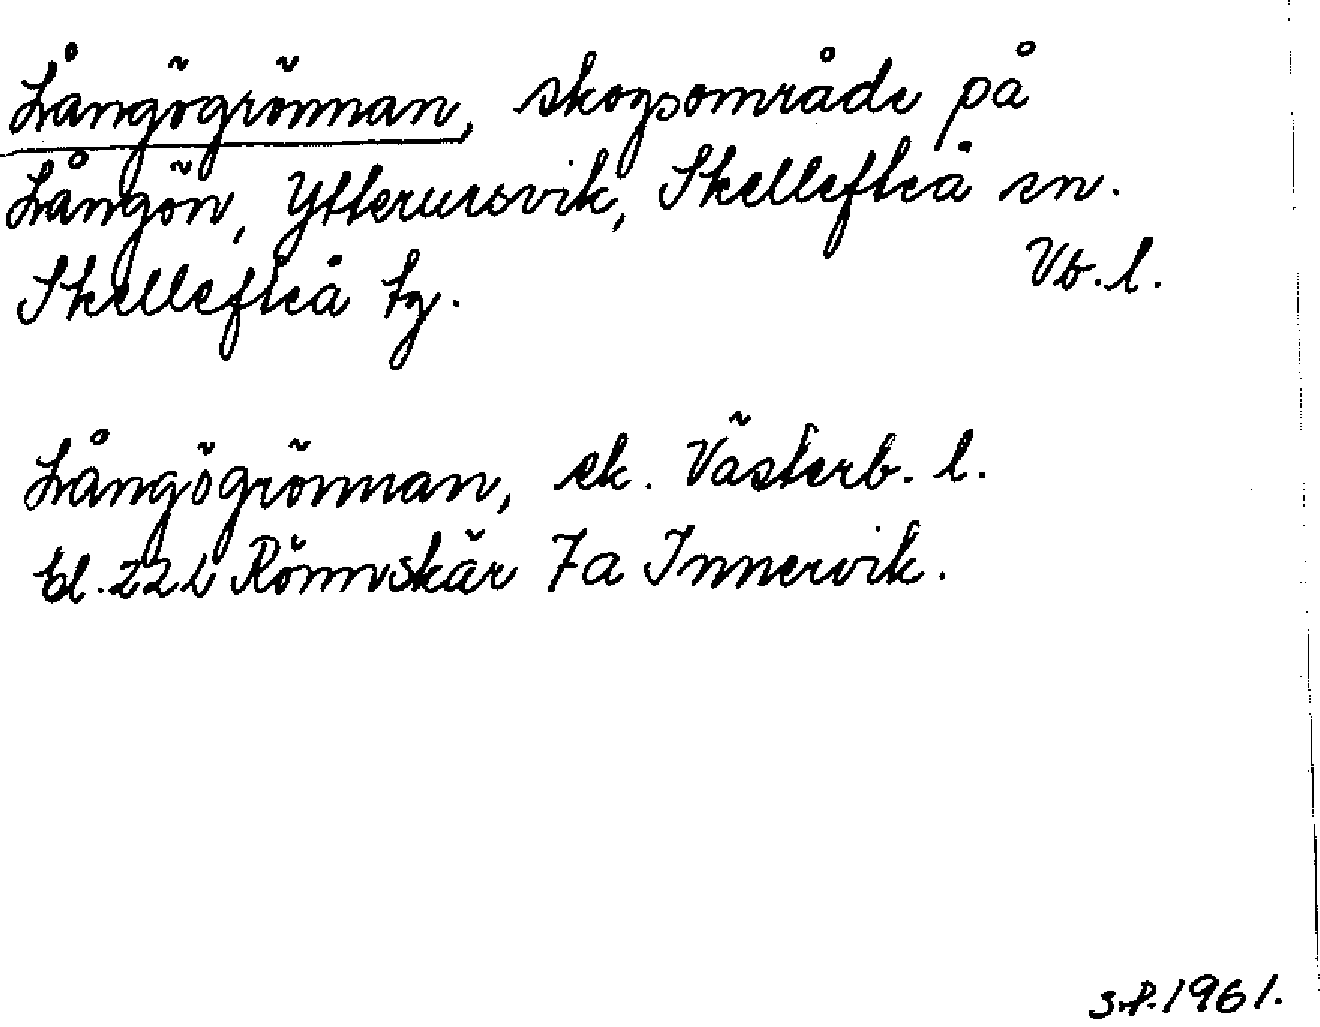 Långögrönnan, skogsområde på
Långön, Ytterursvik, Skellefteå sn.
Skellefteå tg. Vb. l.
Långögrönnan, ek. Västerb. l.
bl. 22L Rönnskär 7a Innervik.
S.P. 1961.